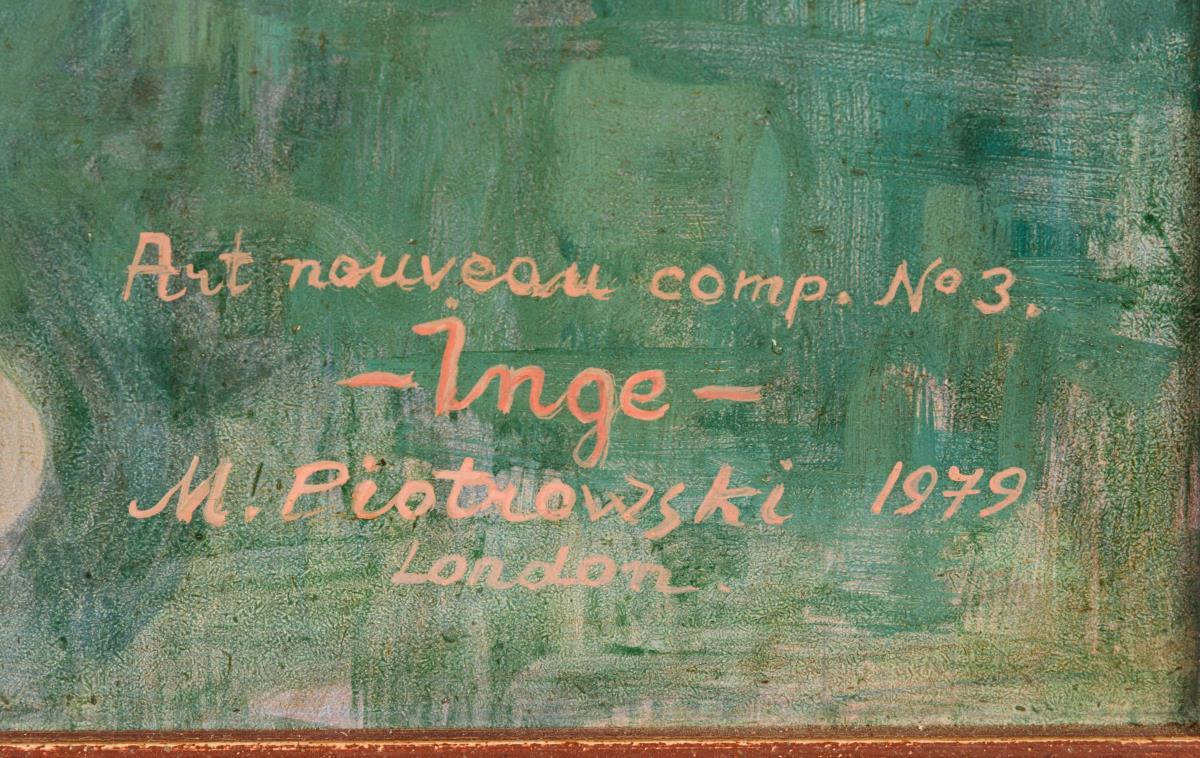 Art nouveau comp. No 3.
- Inge -
M. Piotrowski 1979
London.